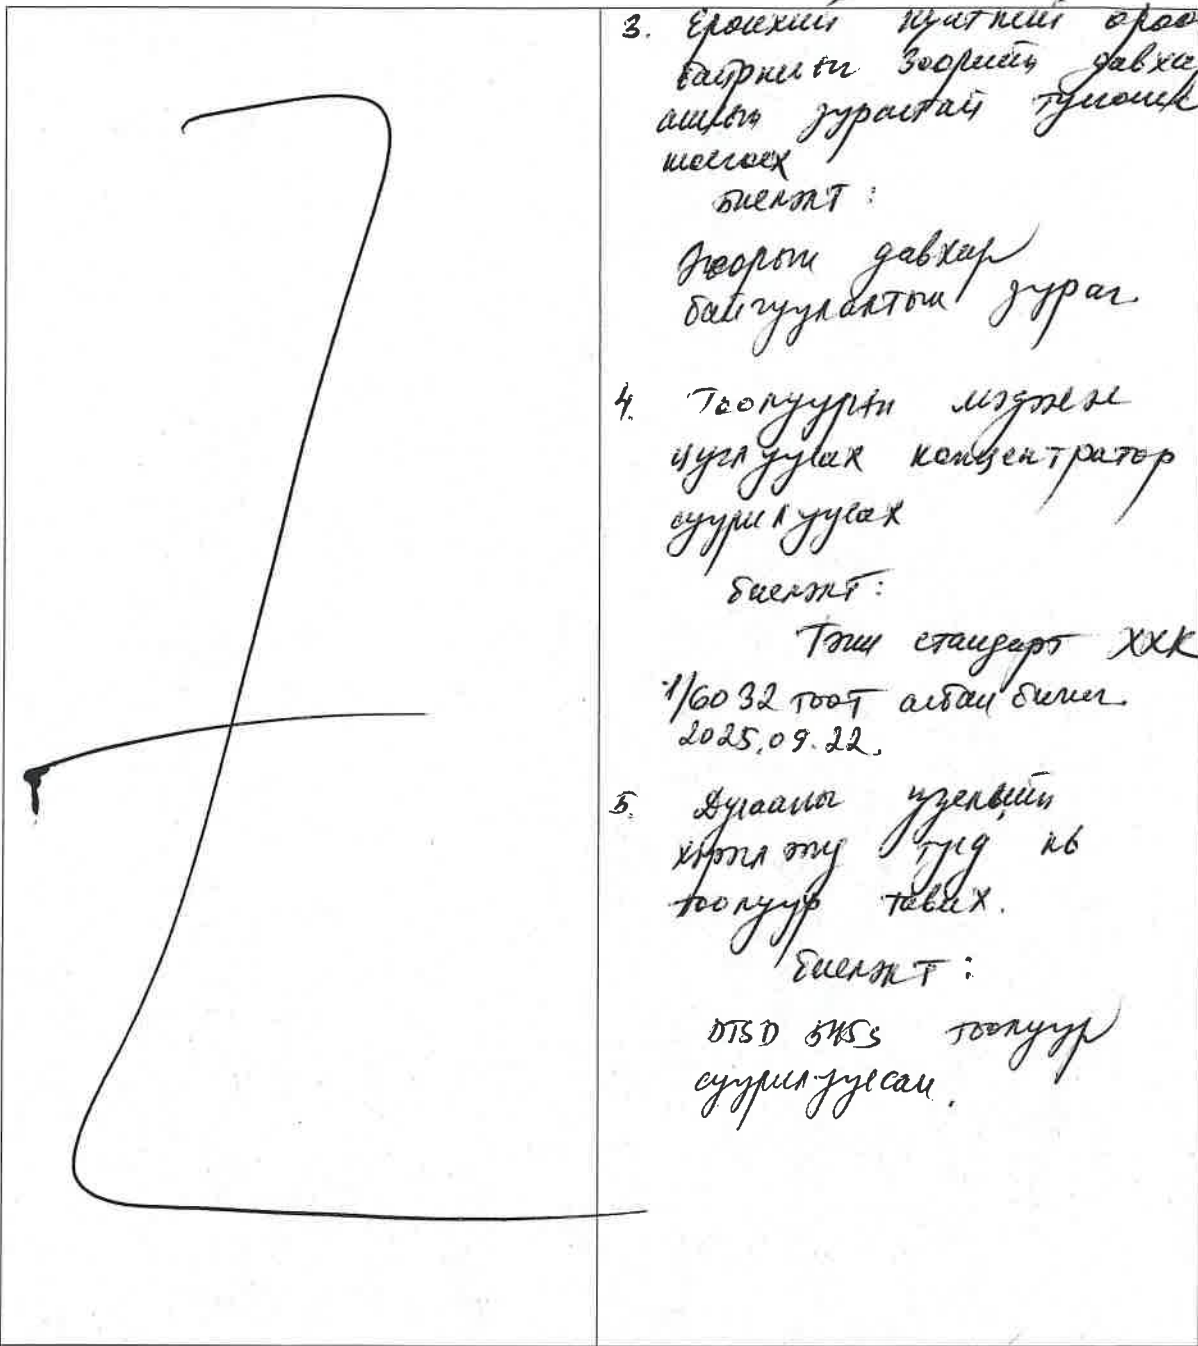 3. Ерөнхий
байрны зоорийн давхар
зурагтай тулгаж
шалгах
Биелэлт:
Зоорын давхар
байгууламжийн зураг
4. Тоолуурын мэдээлэл
цуглуулах концентратор
суурилуулах
биелэлт:
Тэпи стандарт ХХК
1/6032 тоот албан бичиг.
2025.09.22.
5. Дулааны узелийн
хэрэглээнд тусд нь
тоолуур тавих.
Биелэлт:
DTSD 545S тоолуур
суурилуулсан.